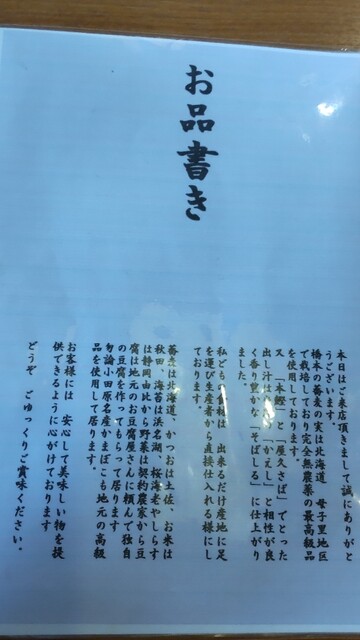 お品書き
本日はご来店頂きまして誠にありがと
うございます。
橋本の蕎麦の実は北海道 母子里地区
で栽培しており完全無農薬の最高級品
を使用しております。
又、「本鰹」と「屋久さば」でとった
出し汁は 「かえし」と相性が良
く香り豊かな「そばしる」に仕上がり
ました。
私どもの食材は 出来るだけ産地に足
を運び生産者から直接仕入れる様にし
ております。
蕎麦は北海道、かつおは土佐、お米は
秋田、海苔は浜名湖、桜海老やしらす
は静岡由比から野菜は契約農家から豆
腐は地元のお豆腐屋さんに頼んで独自
の豆腐を作ってもらって居ります
勿論小田原名産かまぼこも地元の高級
品を使用して居ります。
お客様には 安心して美味しい物を提
供できるように心がけております
どうぞ ごゆっくりご賞味ください。